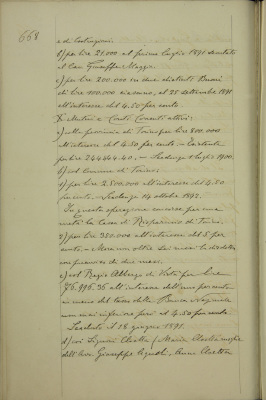 668
e di Costruzioni.
b) per lire 21.000 al primo luglio 1891 accettate
dal Cav. Giuseppe Maggia
c) per lire 200.000 in due distinti Buoni
di lire 100.000 ciascuno, al 28 settembre 1891
all'interesse del 4.50 per cento
X Mutui e Conti Correnti attivi:
a) colla provincia di Torino per lire 800.000
all'interesse del 4.50 per cento
per lire 244444.40. — Scadenza 1 luglio 1900.
b) col Comune di Torino:
1) per lire 2.500.000 all'interesse del 4.50
per cento. Scadenza 14 ottobre 1892.
In questa operazione concorse per una
metà la Cassa di Risparmio di Torino.
2) per lire 350.000 all'interesse del 5 per
cento
con preavviso di due mesi.
c) col Regio Albergo di Virtù per lire
76.996.36 all'interesse dell'uno per cento
in meno del tasso della Banca Nazionale
non mai inferiore però al 4.50 per cento
Scaduto il 18 giugno 1891.
d) coi Signori Maria moglie
dell'Avv. Giuseppe